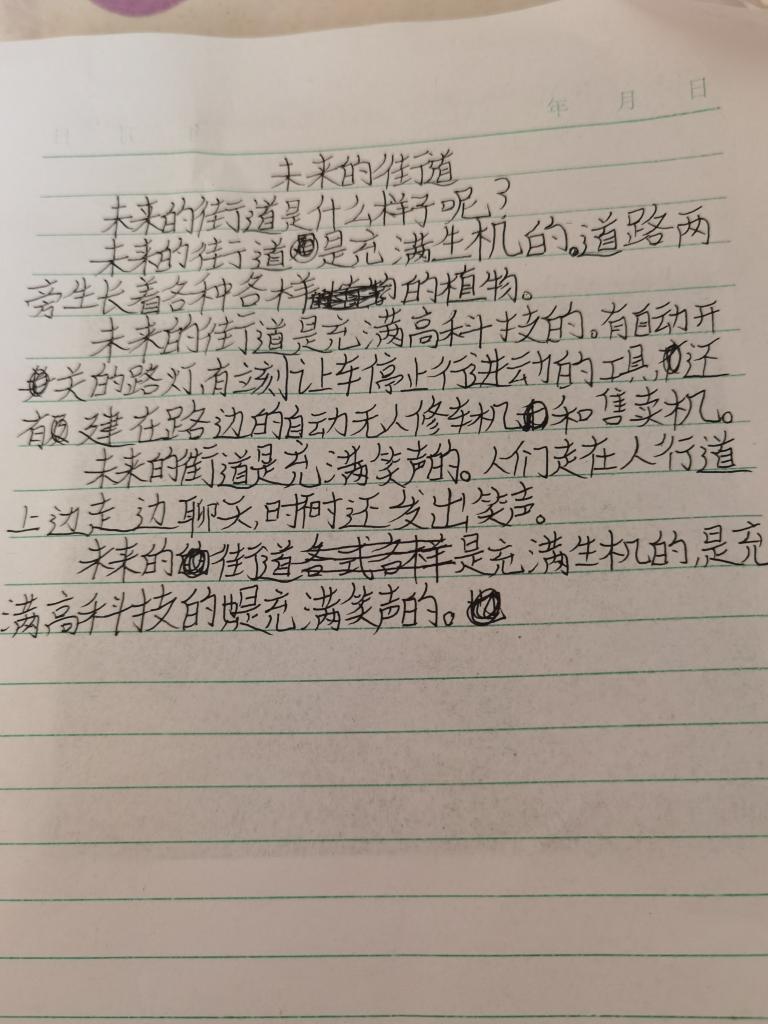 年 月 日
未来的街道
未来的街道是什么样子呢?
未来的街道是充满生机的。道路两
旁生长着各种各样的植物。
未来的街道是充满高科技的。有自动开
关的路灯,有立刻让车停止行进运动的工具,还
有建在路边的自动无人修车机和售卖机。
未来的街道是充满笑声的。人们走在人行道
上边走边聊天,时时还发出笑声。
未来的街道是充满生机的,是充
满高科技的,是充满笑声的。